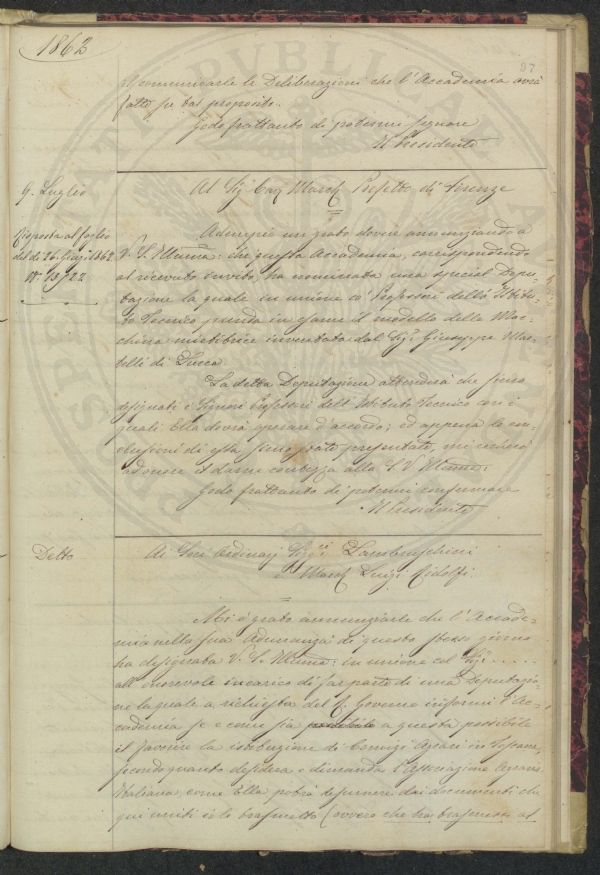 1862
97
di comunicarle le Deliberazioni che l'Accademia avrà
fatte su tal proposito.
Godo frattanto di potermi segnare
Il Presidente
9. Luglio
Risposta al foglio
del dì 26. Giug. 1862
N° 13/22
Al Sig Cav March Prefetto di Firenze
Adempio un grato dovere annunziando a
V. S. Illma: che questa Accademia, corrispondendo
al ricevuto invito, ha nominata una special Depu-
tazione la quale in unione co' Professori dello Istitu-
to Tecnico prenda in esame il modello della Mac-
china mietitrice inventata dal Sig. Giuseppe Mar-
telli di Lucca
La detta Deputazione attenderà che sieno
designati i Signori Professori dell'Istituto Tecnico con i
quali Ella dovrà operare d'accordo; ed appena le con-
clusioni di essa sieno state presentate, mi recherò
ad onore di darne contezza alla S. V. Illma:
Godo frattanto di potermi confermare
Il Presidente
Detto
Ai Soci Ordinarj Sigri Lambruschini
e March Luigi Ridolfi.
Mi è grato annunziarle che l'Accade-
mia nella sua adunanza di questo stesso giorno
ha designata V. S. Illma: in unione col Sig. .....
all'onorevole incarico di far parte di una Deputazio-
ne la quale a richiesta del R. Governo informi l'Ac-
cademia se e come sia possibile a questa possibile
il favorire la istituzione di Comizj Agrarj in Toscana,
secondo quanto desidera e dimanda l'Associazione Agraria
Italiana come Ella potrà desumere dai documenti che
qui uniti io le trasmetto (ovvero che ha trasmesso al